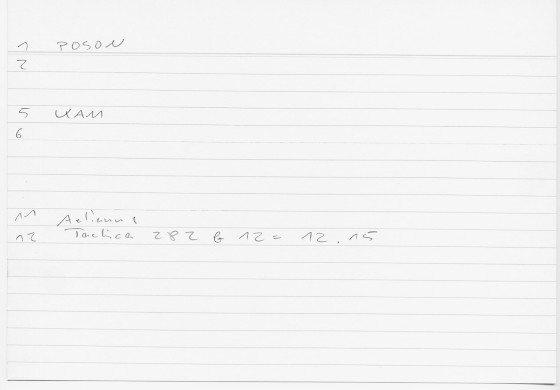 1 POSON
2
5 UAM
6
11
12 Tactica 282 b 12 = 12.15